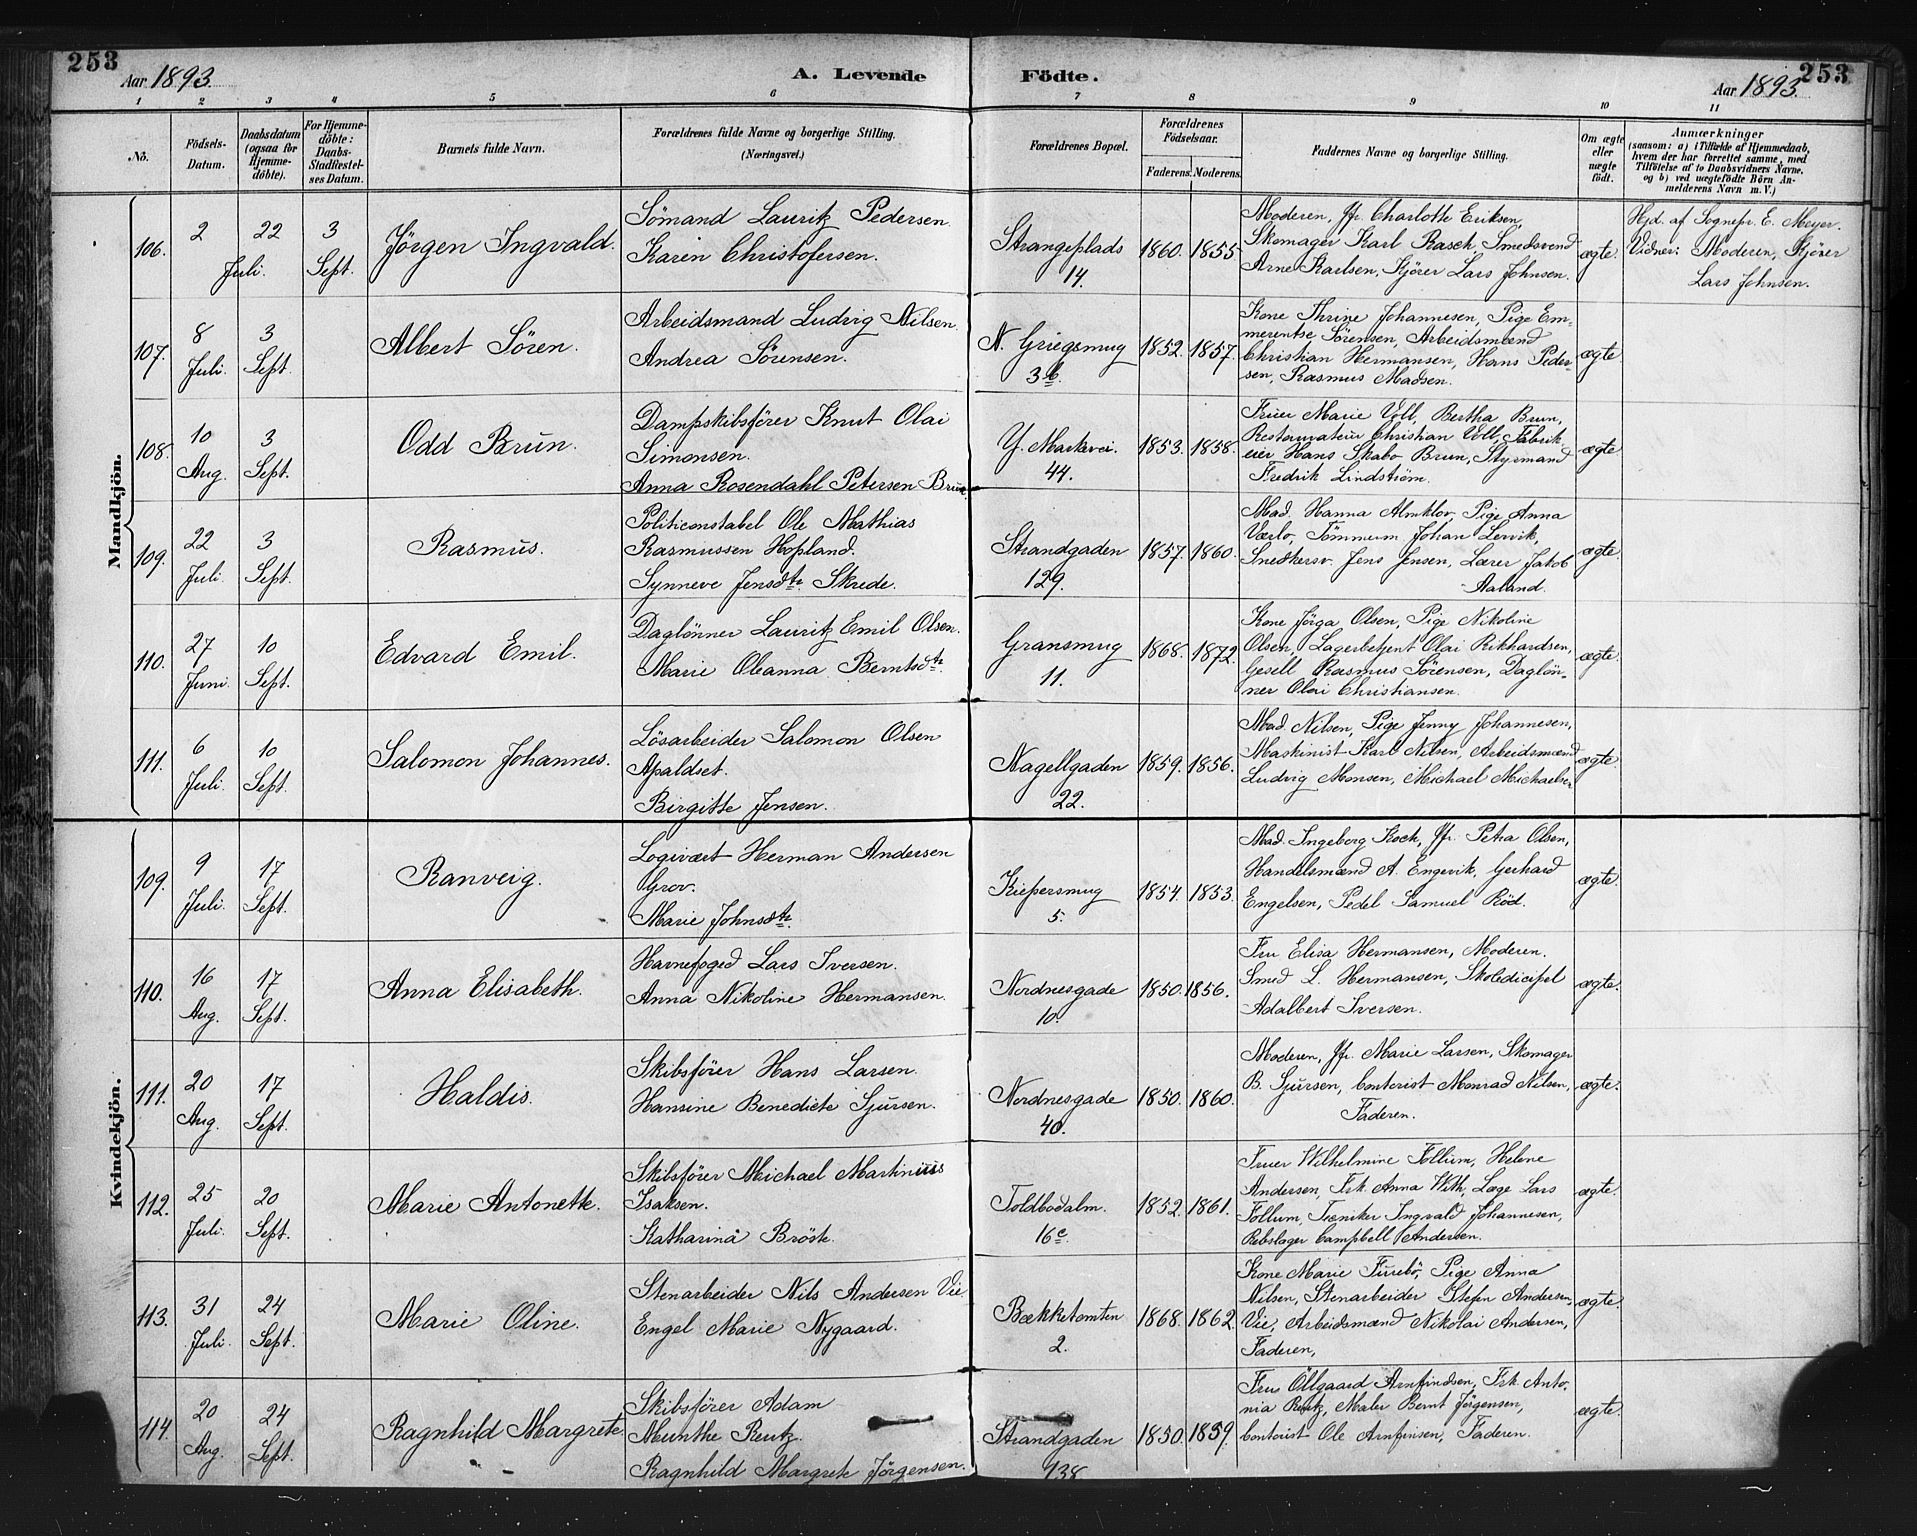 253
Aar 1893.
A. Levende Födte.
Aar 1893.
253
1 2 3 4 5 6 7 8 9 10 11
No.
Födsels-Datum.
Daabsdatum (ogsaa for Hjemme-döbte).
For Hjemme-döbte: Daabs-Stadfestel-ses Datum.
Barnets fulde Navn.
Forældrenes fulde Navne og borgerlige Stilling.
(Næringsvei.)
Forældrenes Bopæl.
Forældrenes Födselsaar.
Faderens. Moderens.
Faddernes Navne og borgerlige Stilling.
Om ægte eller uægte födt.
Anmærkninger
(saasom: a) i Tilfælde af Hjemmedaab, hvem der har forrettet samme, med Tilföielse af to Daabsvidners Navne. og b) ved uægtefödte Börn An-melderens Navn m. V.)
Mandkjön.
106.
2 22 Juli.
3 Sept.
Jörgen Ingvald.
Sömand Lauritz Pedersen
Karen Christofersen.
Strangeplads
14.
1860. 1855
Moderen, Jfr. Charlotte Eriksen,
Skomager Karl Rasch Smedsvend
Arne Karlsen, Kjörer Lars Johnsen.
ægte.
Hjd. af Sognepr. E. Meyer.
Vidner: Moderen, Kjörer
Lars Johnsen.
107.
8 Juli.
3 Sept.
Albert Sören.
Arbeidsmand Ludvig Nilsen.
Andrea Sörensen.
N. Griegsmug
3 b.
1852. 1857.
Kone Thrine Johannesen, Pige Em-
merentse Sörensen, Arbeidsmænd
Christian Hermansen, Hans Peder-
sen, Rasmus Madsen.
ægte
108.
10 Aug.
3 Sept.
Odd Brun.
Dampskibsförer Knut Olai
Simonsen.
Anna Rosendahl Petersen Brun.
Y. Markvei.
44.
1853. 1858.
Fruer Marie Voll, Bertha Brun,
Restauratør Christian Voll, Fabrik-
eier Hans Skabo Brun, Styrmand
Fredrik Lindström.
ægte
109.
22 Juli.
3 Sept.
Rasmus.
Politiconstabel Ole Mathias
Rasmussen Hopland.
Synneve Jensdtr. Skrede.
Strandgaden
129.
1857. 1860.
Mad. Hanna Almklov, Pige Anna
Værlo, Tömmerm. Johan Lervik,
Snedkersv. Jens Jensen, Lærer Jakob
Aaland.
ægte.
110.
27 Juni.
10 Sept.
Edvard Emil.
Daglönner Lauritz Emil Olsen.
Marie Oleanna Berntsdtr.
Gransmug
11.
1868. 1872.
Kone Jörga Olsen, Pige Nikoline
Olsen, Lagerbetjent Olai Rikhardsen,
Gesell Rasmus Sörensen, Daglön-
ner Olai Christiansen.
ægte.
111.
6 Juli.
10 Sept.
Salomon Johannes.
Lösarbeider Salomon Olsen
Apaldset.
Birgitte Jensen.
Nagellgaden
22.
1859. 1856.
Mad. Nilsen, Pige Jenny Johannesen,
Maskinist Karl Nilsen, Arbeidsmænd
Ludvig Monsen, Michael Michaelsen
ægte.
Kvindekjön.
109.
9 Juli.
17 Sept.
Ranveig.
Logivært Herman Andersen
Grov.
Marie Johnsdtr.
Kiepersmug
5.
1854. 1853.
Mad. Ingeborg Kock, Jfr. Petra Olsen,
Handelsmænd A. Engevik, Gerhard
Engelsen, Pedel Samuel Röd.
ægte.
110.
16 Aug.
17 Sept.
Anna Elisabeth.
Havnefoged Lars Iversen.
Anna Nikoline Hermansen.
Nordnesgade
10.
1850. 1856.
Fru Elisa Hermansen, Moderen.
Smed L. Hermansen, Skoledicipel
Adalbert Iversen.
ægte.
111.
20 Aug.
17 Sept.
Haldis.
Skibsförer Hans Larsen.
Hansine Benedicte Sjursen.
Nordnesgade
40.
1850. 1860.
Moderen, Jfr. Marie Larsen, Skomager
B. Sjursen, Contorist Monrad Nilsen,
Faderen.
ægte.
112.
25 Juli.
20 Sept.
Marie Antonette.
Skibsförer Michael Martinius
Isaksen.
Katharina Bröste.
Toldbodalm.
16 c.
1852. 1861.
Fruer Wilhelmine Follum, Helene
Andersen, Frk. Anna With, Læge Lars
Follum, Tekniker Ingvald Johannesen,
Rebslager Campbell Andersen.
ægte.
113.
31 Juli.
24 Sept.
Marie Oline.
Stenarbeider Nils Andersen Vie
Engel Marie Nygaard.
Bækketomten
2.
1868. 1862.
Kone Marie Furebö, Pige Anna
Nilsen, Stenarbeider Stefen Andersen
Vie, Arbeidsmænd Nikolai Andersen,
Faderen,
ægte.
114.
20 Aug.
24 Sept.
Ragnhild Margrete
Skibsförer Adam
Munthe Reutz.
Ragnhild Margrete Jörgensen.
Strandgaden
138
1850. 1859.
Fru Öllgaard Arnfindsen, Frk. Anto-
nia Reutz, Maler Bernt Jörgensen,
Contorist Ole Arnfinsen, Faderen.
ægte.